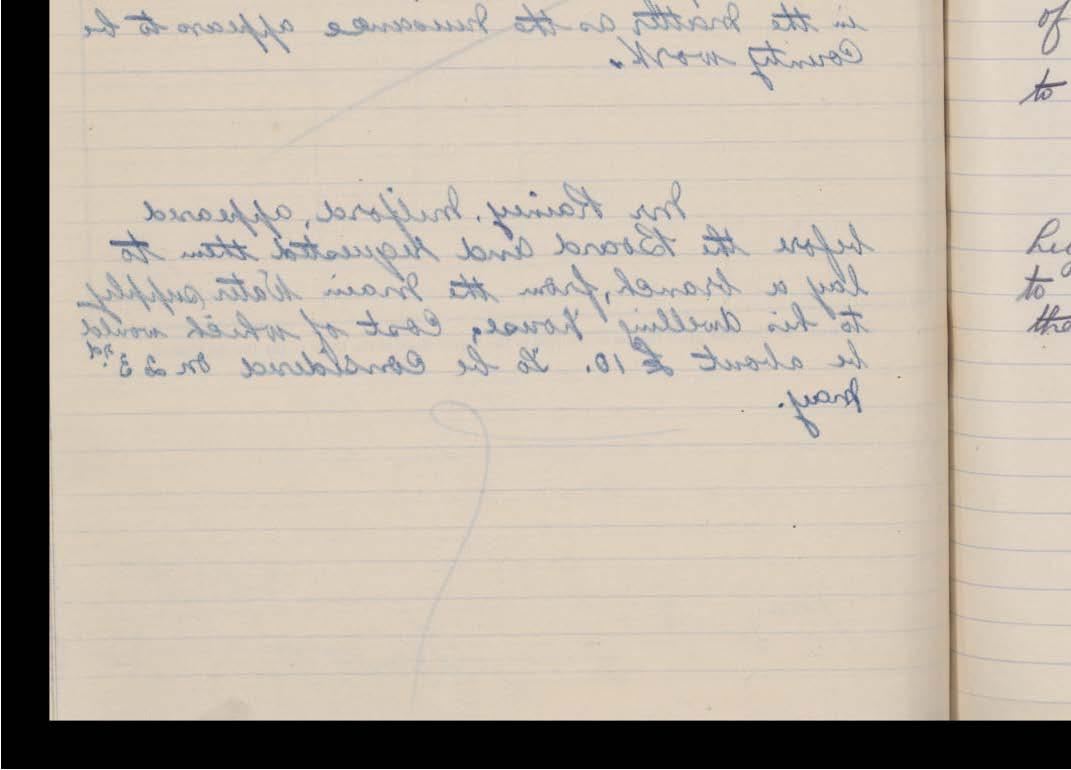 in the matter as the nuisance appears to be
County work.
Mr Rainey, Milford, appeared
before the Board and requested them to
lay a branch, from the main Water supply
to his dwelling house, Cost of which would
be about £10. To be Considered on 23rd
May.
of
to
to
the